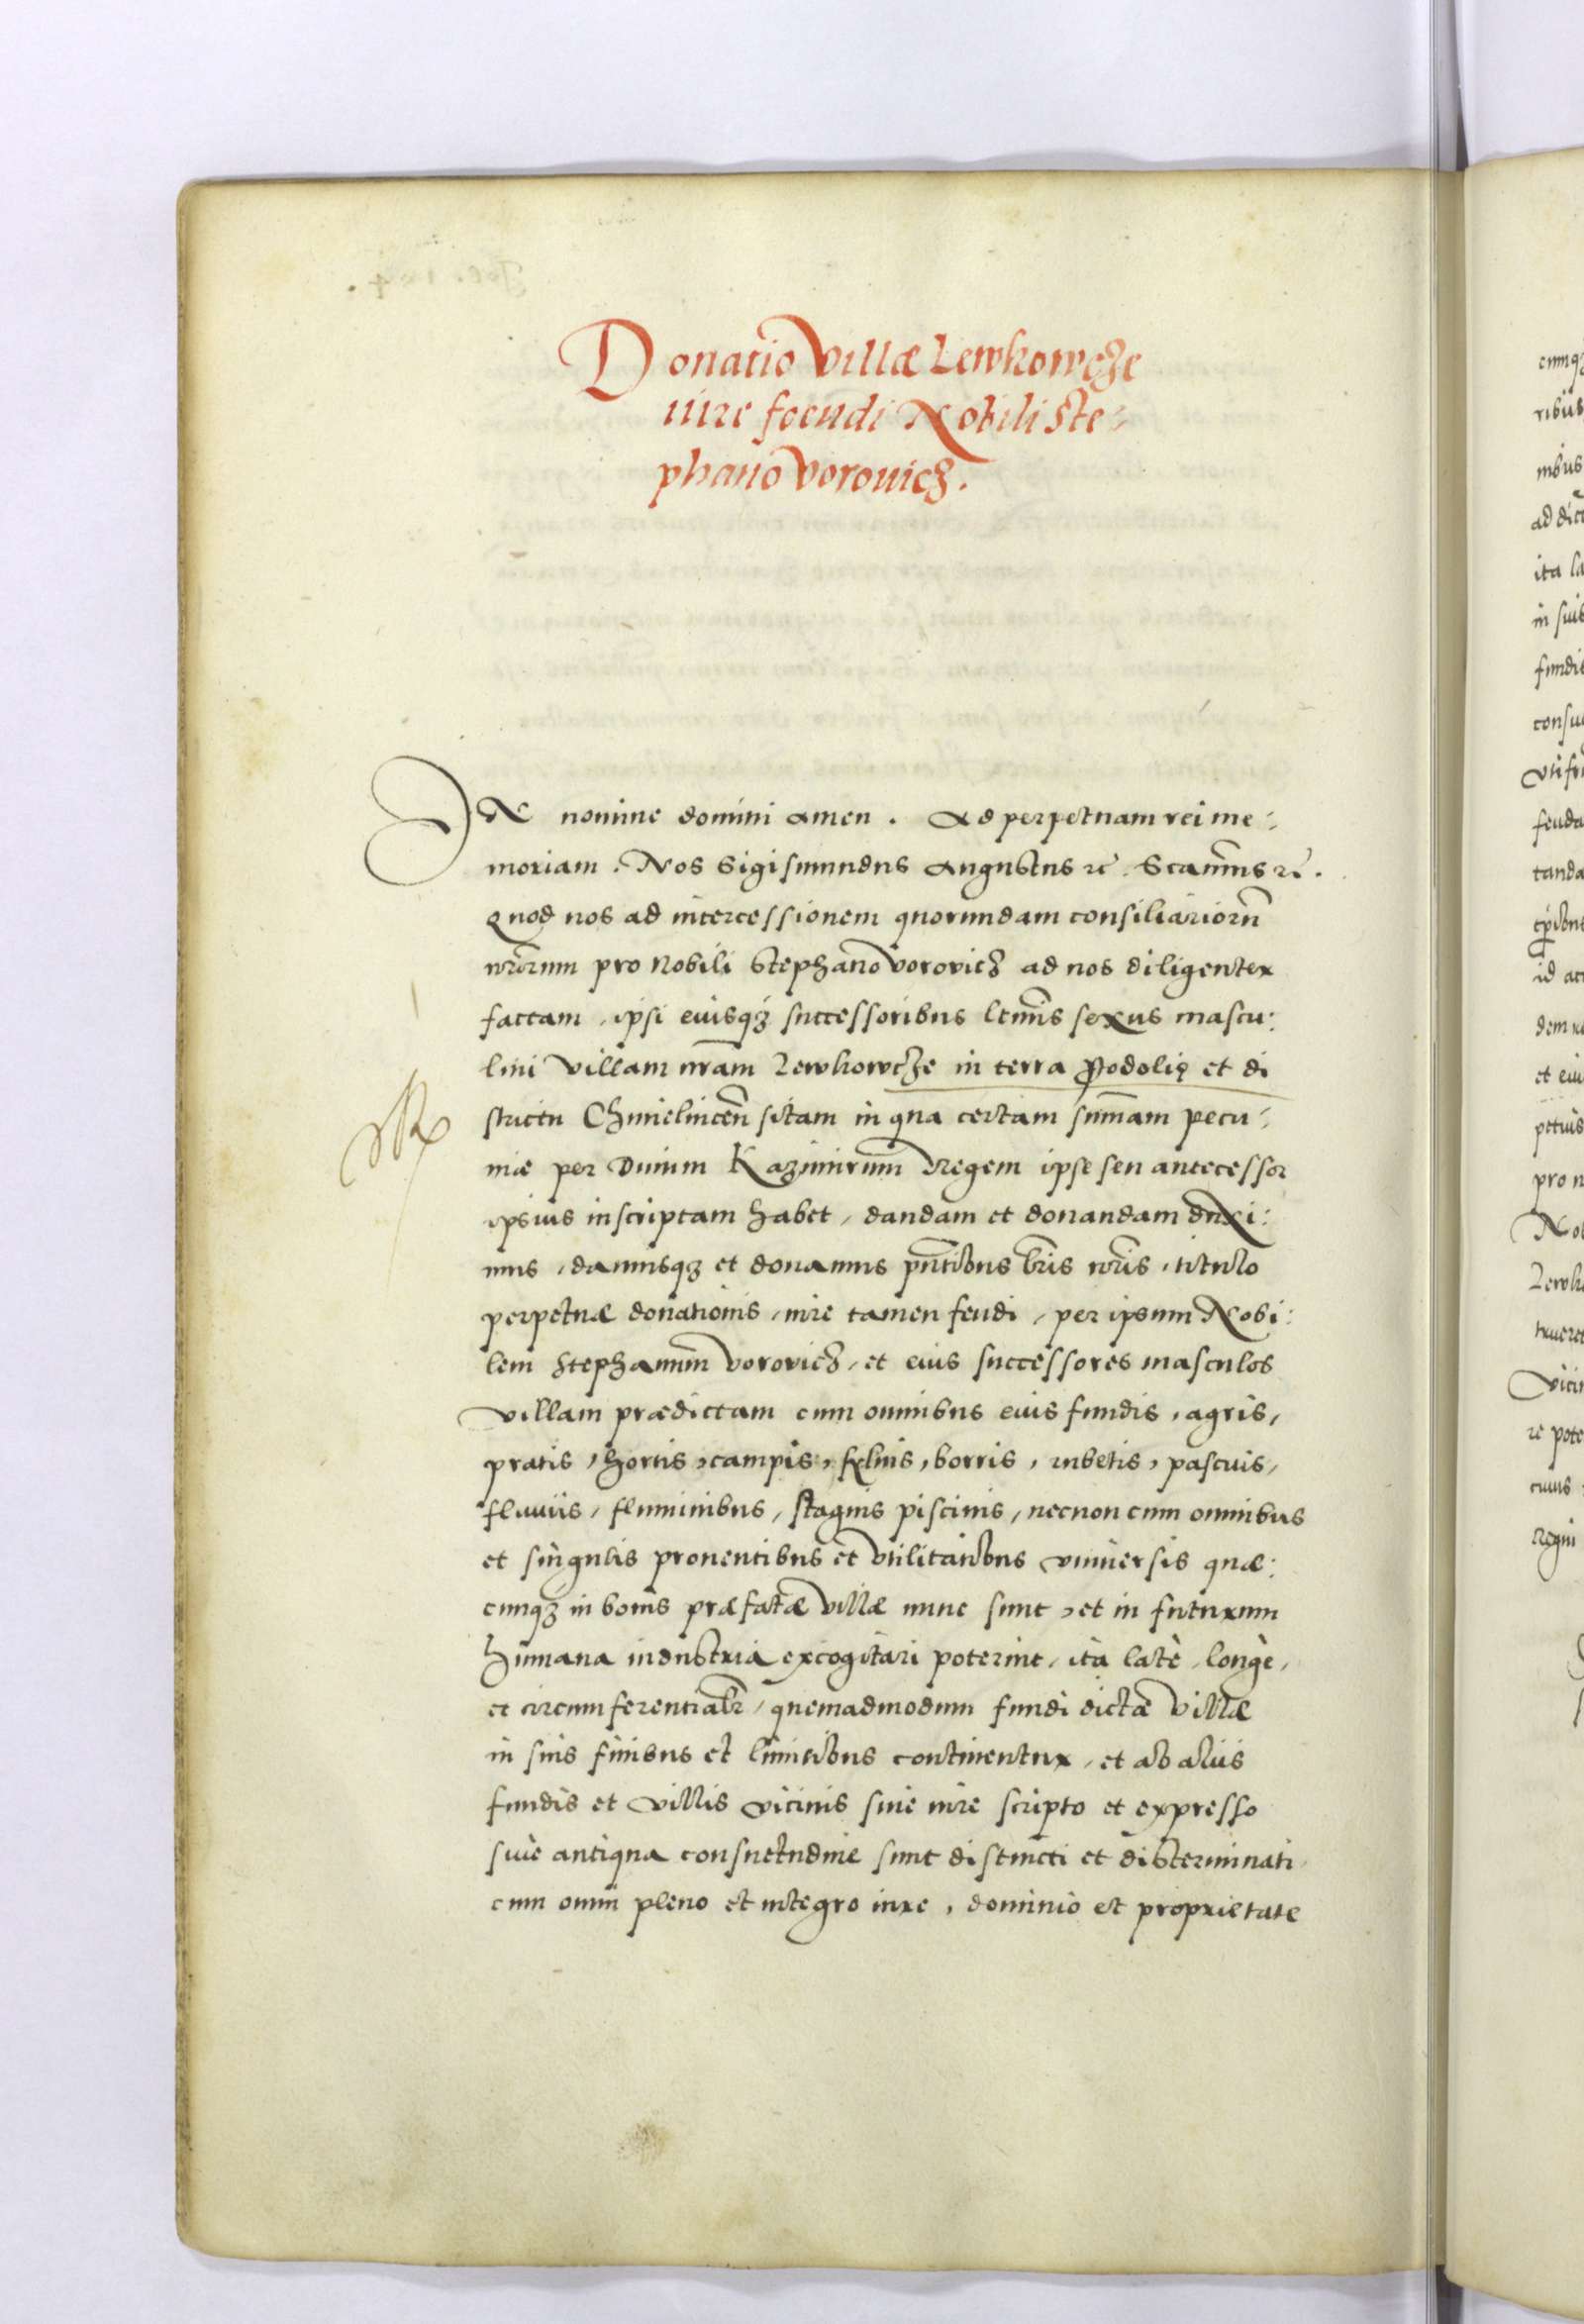 Donatio villæ Lewkowcze
iure foeudi Nobili Ste-
phano Vorouicz.
IN nomine domini amen. Ad perpetuam rei me:
moriam. Nos Sigismundus Augustus rc. Scimus rc.
Quod nos ad intercessionem quorundam consiliariorū
nrorum pro Nobili Stephano Vorovicz ad nos diligenter
factam, ipsi eiusqz successoribus ltimis sexus mascu:
lini villam nram Lewkowcze in terra Podolię et di
strictu Chmielnicen̄ sitam in qua certam sum̄am pecu:
niæ per Diuum Kazimirum Regem ipse seu antecessor
ipsius inscriptam habet, dandam et donandam duxi:
mus, damusqz et donamus pntibus lris nris, titulo
perpetuæ donationis, iure tamen feudi, per ipsum Nobi:
lem Stephanum Vorovicz, et eius successores masculos
villam prædictam cum omnibus eius fundis, agris,
pratis, hortis, campis, syluis, borris, rubetis, pascuis,
fluuiis, fluminibus, stagnis piscinis, necnon cum omnibus
et singulis prouentibus et vtilitatibus vniuersis quæ:
cunqz in bonis præfatæ villæ nunc sunt, et in futurum
humana industria excogitari poterint, ita latè, longè,
et circumferentialr, quemadmodum fundi dictæ villæ
in suis finibus et limitibus continentur, et ab aliis
fundis et villis vicinis siue iure scripto et expresso
siue antiqua consuetudine sunt distincti et disterminati
cum omni pleno et integro iure, dominio et proprietate